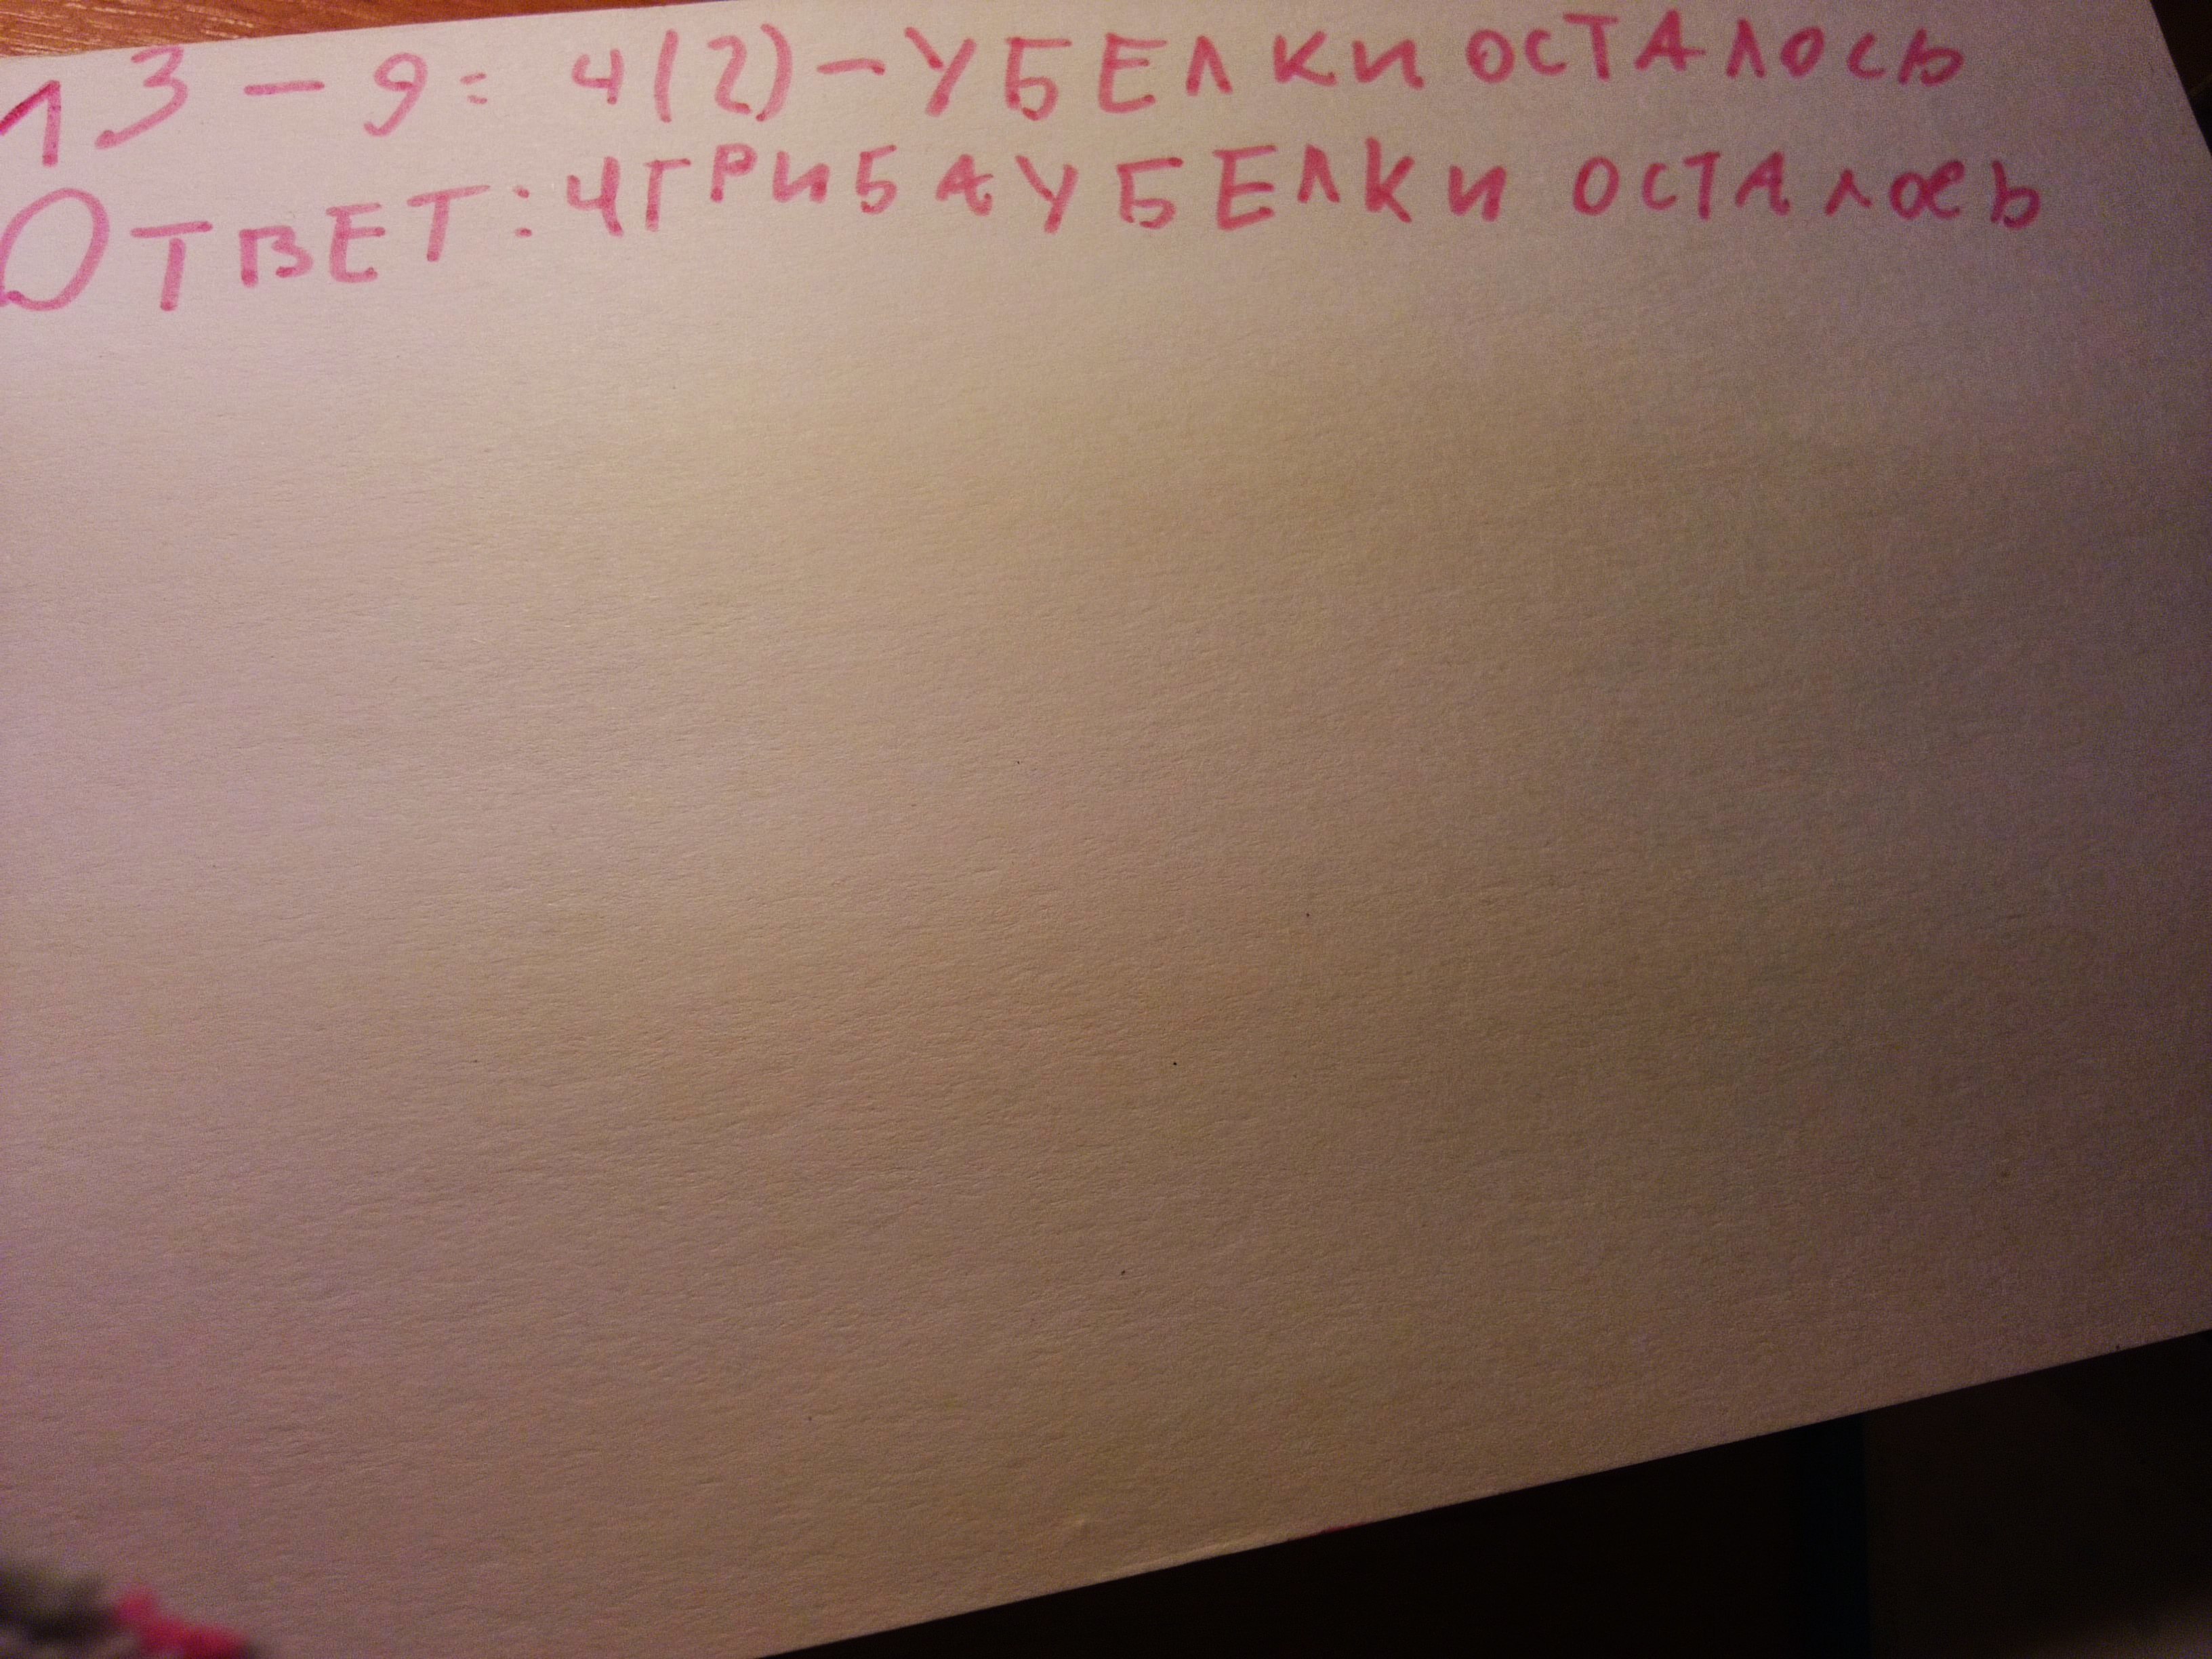 13 - 9 = 4 (2) - У БЕЛКИ ОСТАЛОСЬ
ОТВЕТ: 4 ГРИБА У БЕЛКИ ОСТАЛОСЬ